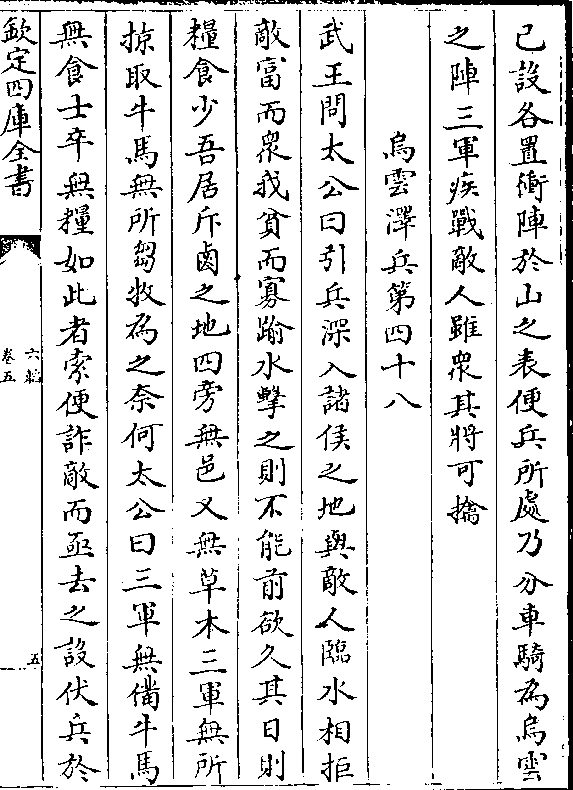 已設各置衝陣於山之表便兵所處乃分車騎為烏雲
之陣三軍疾戰敵人雖衆其將可擒
烏雲澤兵第四十八
武王問太公曰引兵深入諸侯之地與敵人臨水相拒
敵富而衆我貧而寡踰水擊之則不能前欲久其日則
糧食少吾居斥鹵之地四旁無邑又無草木三軍無所
掠取牛馬無所芻牧為之奈何太公曰三軍無備牛馬
無食士卒無糧如此者索便詐敵而亟去之設伏兵於
欽定四庫全書
六韜
卷五
五